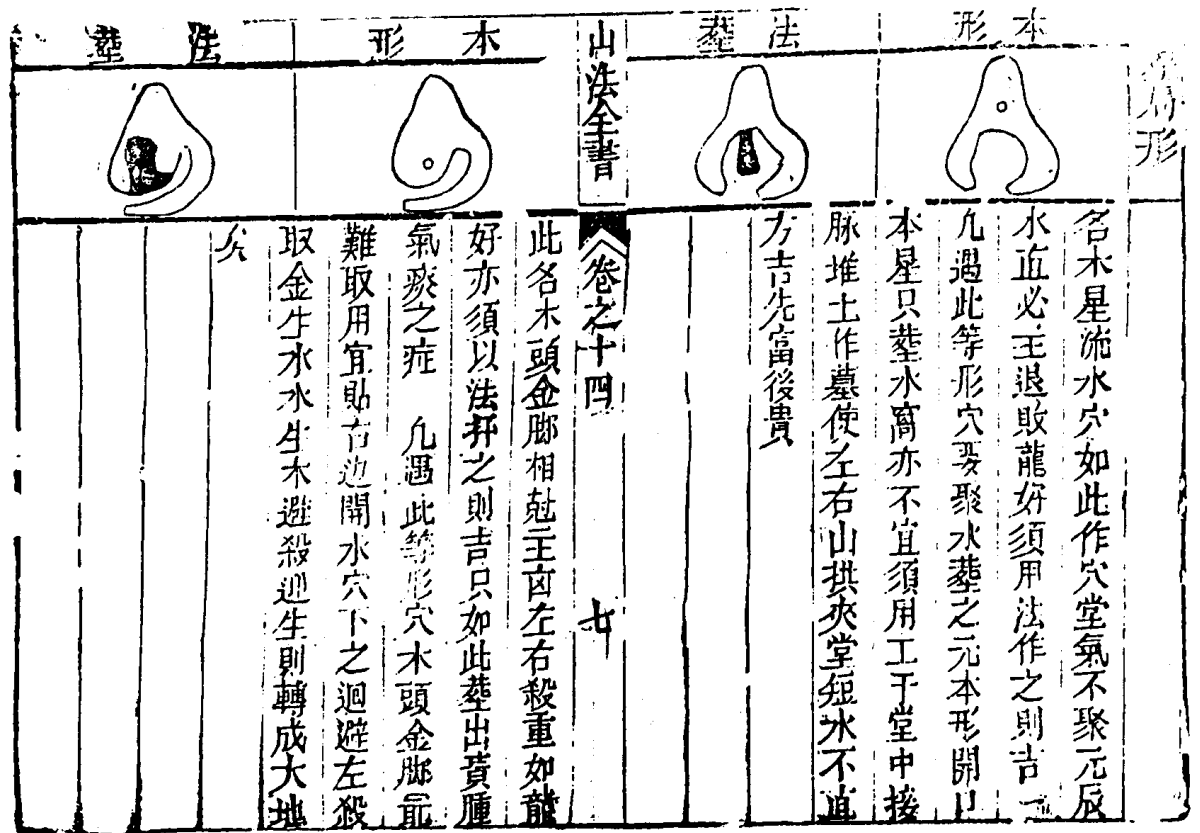 形
本形
葬法
名木星流水穴如此作穴堂氣不聚元辰
水直必主退敗龍好須用法作之則吉
凡遇此等形穴要聚水葬之元本形開口
本星只葬水窩亦不宜須用工于堂中接
脉堆土作墓使左右山拱夾堂短水不直
方吉先富後貴
山法全書
卷之十四
七
本形
葬法
此名木頭金脚相尅主凶左右殺重如龍
好亦須以法扦之則吉只如此葬出賁腫
氣痰之症 凡遇此等形穴木頭金脚最
難取用宜貼右边開水穴下之迴避左殺
取金生水水生木避殺迎生則轉成大地
矣